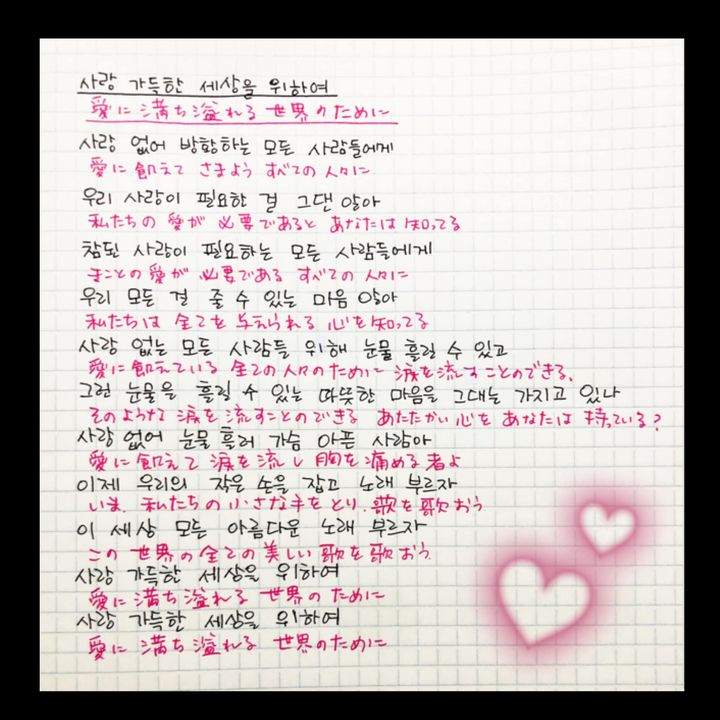 사랑 가득한 세상을 위하여
愛に満ち溢れる世界のために
사랑 없어 방황하는 모든 사람들에게
愛に飢えて さまよう すべての人々に
우리 사랑이 필요한 걸 그댄 알아
私たちの愛が必要であると あなたは知ってる
참된 사랑이 필요하는 모든 사람들에게
まことの愛が必要である すべての人々に
우리 모든 걸 줄 수 있는 마음 알아
私たちは全てを与えられる心を知ってる
사랑 없는 모든 사람들 위해 눈물 흘릴 수 있고
愛に飢えている 全ての人々のために 涙を流すことのできる、
그런 눈물을 흘릴 수 있는 따뜻한 마음을 그대는 가지고 있나
そのような涙を流すことのできる あたたかい心をあなたは持っている?
사랑 없어 눈물 흘려 가슴 아픈 사람아
愛に飢えて涙を流し胸を痛める者よ
이제 우리의 작은 손을 잡고 노래 부르자
いま、私たちの小さな手をとり、歌を歌おう
이 세상 모든 아름다운 노래 부르자
この世界の全ての美しい歌を歌おう
사랑 가득한 세상을 위하여
愛に満ち溢れる世界のために
사랑 가득한 세상을 위하여
愛に満ち溢れる 世界のために